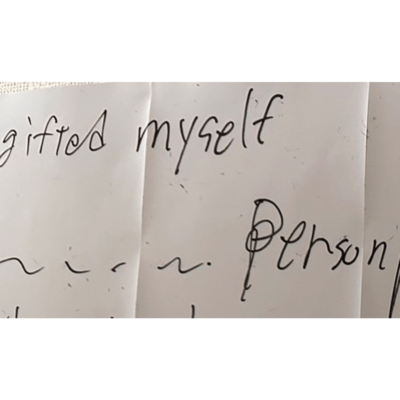 gifted myself
~ ~ - ~. Person